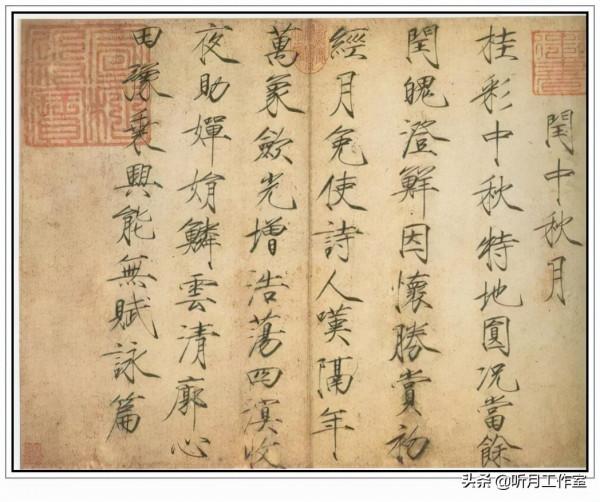 閏中秋月
桂彩中秋特地圓況當餘
閏魄澄鮮因懷勝賞初
經月免使詩人嘆隔年
萬象歛光增浩蕩四溟收
夜助嬋娟鱗雲清廓心
田豫乘興能無賦詠篇
头条 @听月工作室